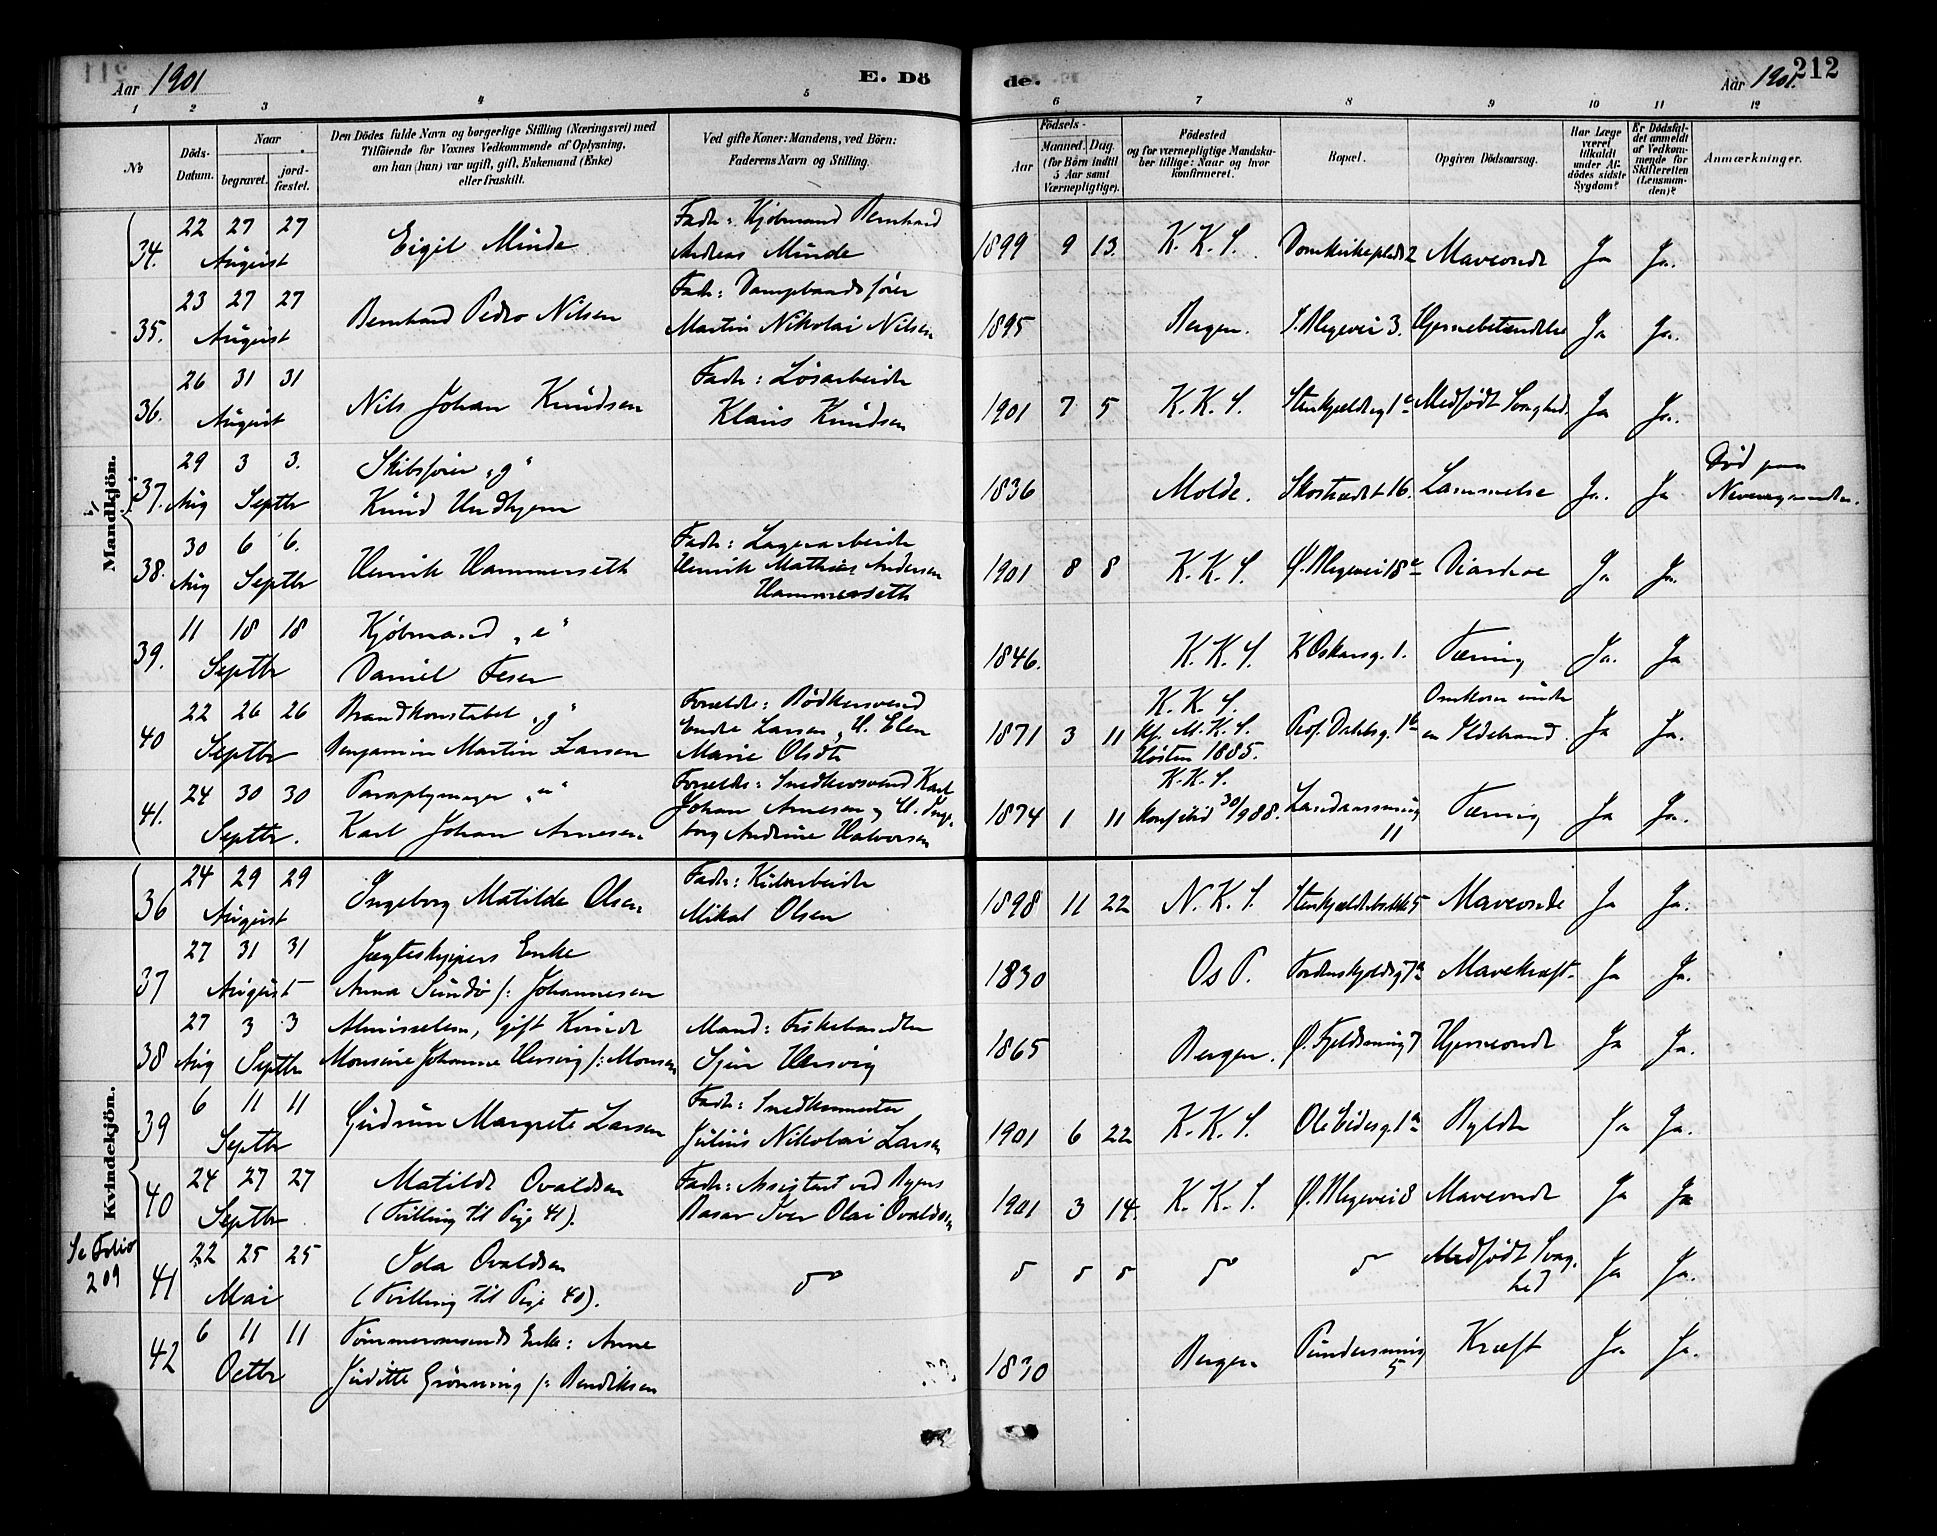 Aar 1901
E. Dö
de.
Aar 1901.
212
1 2 3 4 5 6 7 8 9 10 11 12
№
Döds-Datum.
Naar
begravet.
jord-fæstet.
Den Dödes fulde Navn og borgerlige Stilling (Næringsvei) med
Tilföiende for Voxnes Vedkommende af Oplysning,
om han (hun) var ugift, gift, Enkemand (Enke)
eller fraskilt.
Ved gifte Koner: Mandens, ved Börn:
Faderens Navn og Stilling.
Födsels-
Aar
Maaned. Dag.
(for Börn indtil
5 Aar samt
Værnepligtige).
Födested
og for værnepligtige Mandska-
ber tillige: Naar og hvor
konfirmeret.
Bopæl.
Opgiven Dödsaarsag.
Har Læge
været
tilkaldt
under Af-
dödes sidste
Sygdom?
Er Dödsfal-
det anmeldt
af Vedkom-
mende for
Skifteretten
(Lensman-
den)?
Anmærkninger.
Mandkjön.
34. 22 27 27 August Eigil Minde
Fader: Kjöbmand Bernhard
Andreas Minde
1899 9 13. K. K. S. Domkirkeplads 2 Maveonde Ja Ja.
35. 23 27 27 August Bernhard Pedro Nilsen
Martin Nikolai Nilsen
1895 Bergen. 3. Hjernebetændelse Ja Ja.
36. 26 31 31 August Nils Johan Knudsen
Fader: Lösarbeider
Klaus Knudsen
1901 7 5 K. K. S. Medfödt Svaghed. Ja Ja.
37. 29 3 3. Aug Septbr Skibsförer "g"
Knud Undhjem
1836 Molde. Skostrædet 16. Lammelse Ja. Ja
Död paa
38. 30 6 6. Aug Septbr Henrik Hammerseth
Fader: Lagerarbeider
Henrik Mathias Andersen
Hammerseth
1901 8 8 K. K. S. Diarrhoe Ja Ja.
39. 11 18 18 Septbr Kjöbmand "e"
Daniel Feser
1846. K. K. S. K Oskarsg. 1. Tæring Ja. Ja
40 22 26 26 Septbr Brandkonstabel "g"
Benjamin Martin Larsen
Forældre: Bödkersvend
Endre Larsen, H. Elen
Marie Olsdtr
1871 3 11 K. K. S.
Kf. M. K. S.
Hösten 1885.
Omkom under
en Ildebrand. Ja Ja.
41. 24 30 30 Septbr. Paraplymager "u"
Karl Johan Arnesen
Forældre: Snedkersvend Karl
Johan Arnesen, H. Inge-
borg Andrine Halvorsen
1874 1 11 K. K. S.
11 Tæring Ja Ja.
Kvindekjön.
36 24 29 29 August Ingeborg Matilde Olsen
Fader:
Mikal Olsen
1898 11 22 N. K. S. Maveonde Ja Ja.
37 27 31 31 August Jægteskippers Enke
Anna Sundö f: Johannesen
1830 Os P. Tordenskjoldsg 7a Mavekræft Ja Ja.
38 27 3 3 Aug Septbr Almisselem, gift Kvinde
Monsine Johanne Hersvig f: Monsen
Mand: Fiskehandler
Sjur Hersvig
1865 Bergen. Ö. Fjeldsmug 7 Hjerteonde Ja Ja.
39 6 11 11 Septbr Gudrun Margrete Larsen
Fader: Snedkermester
Julius Nikolai Larsen
1901 6 22 K. K. S. Ole Eidesg. 1a Bylder Ja Ja.
40 24 27 27 Septbr Matilde Ovaldsen
(Tvilling til Pige 41).
Fader: Assistent ved Byens
Basar Iver Olai Ovaldsen
1901 3 14. K. K. S. Maveonde Ja Ja
Se Folio
209
41 22 25 25 Mai Ida Ovaldsen
(Tvilling til Pige 40).
Medfödt Svag-
hed Ja Ja.
42 6 11 11 Octbr Tömmermands Enke: Anne
Juditte Grönning f: Bendiksen
1830 Bergen
5 Kræft Ja Ja.